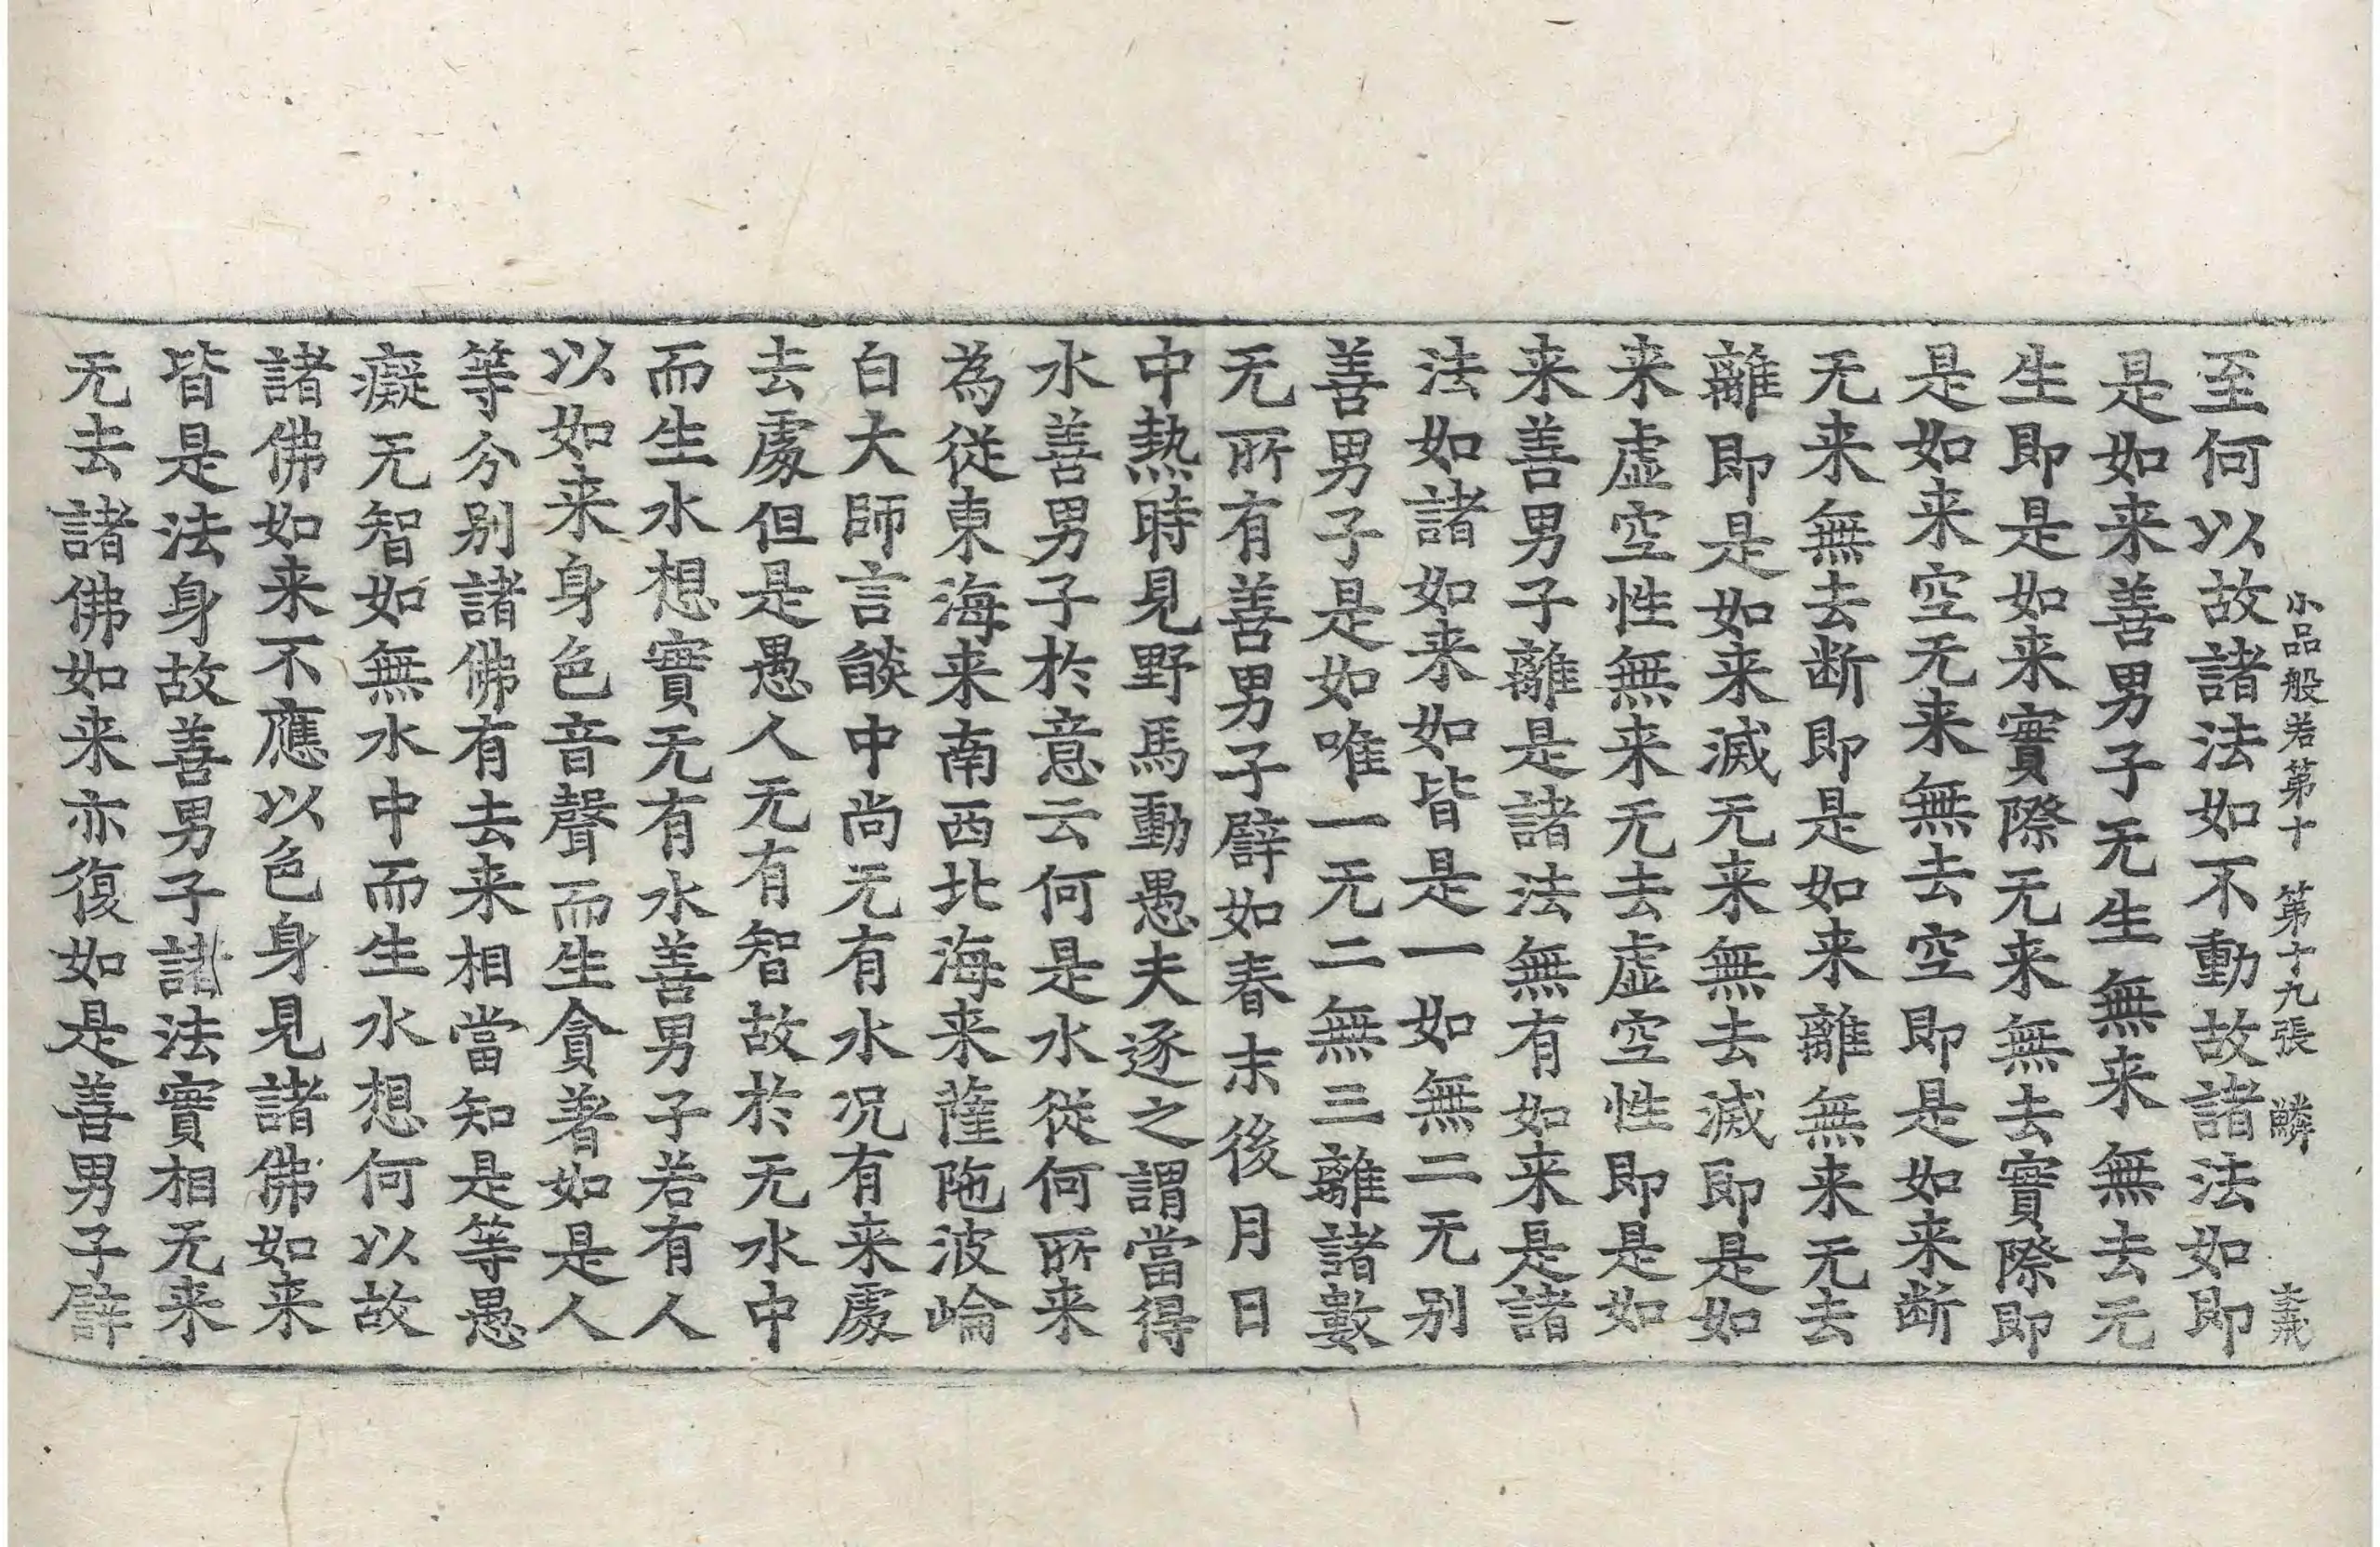 小品般若第十 第十九張 鱗
至何以故諸法如不動故諸法如即
是如来善男子无生無来無去无
生即是如来實際无来無去實際即
是如来空无来無去空即是如来断
无来無去断即是如来離無来无去
離即是如来滅无来無去滅即是如
来虚空性無来无去虚空性即是如
来善男子離是諸法無有如来是諸
法如諸如来如皆是一如無二无别
善男子是如唯一无二無三離諸數
无所有善男子譬如春末後月日
中熱時見野馬動愚夫逐之謂當得
水善男子於意云何是水從何所来
為從東海来南西北海来薩陁波崘
白大師言燄中尚无有水况有来處
去處但是愚人无有智故於无水中
而生水想實无有水善男子若有人
以如来身色音聲而生貪著如是人
等分别諸佛有去来相當知是等愚
癡无智如無水中而生水想何以故
諸佛如来不應以色身見諸佛如来
皆是法身故善男子諸法實相无来
无去諸佛如来亦復如是善男子譬